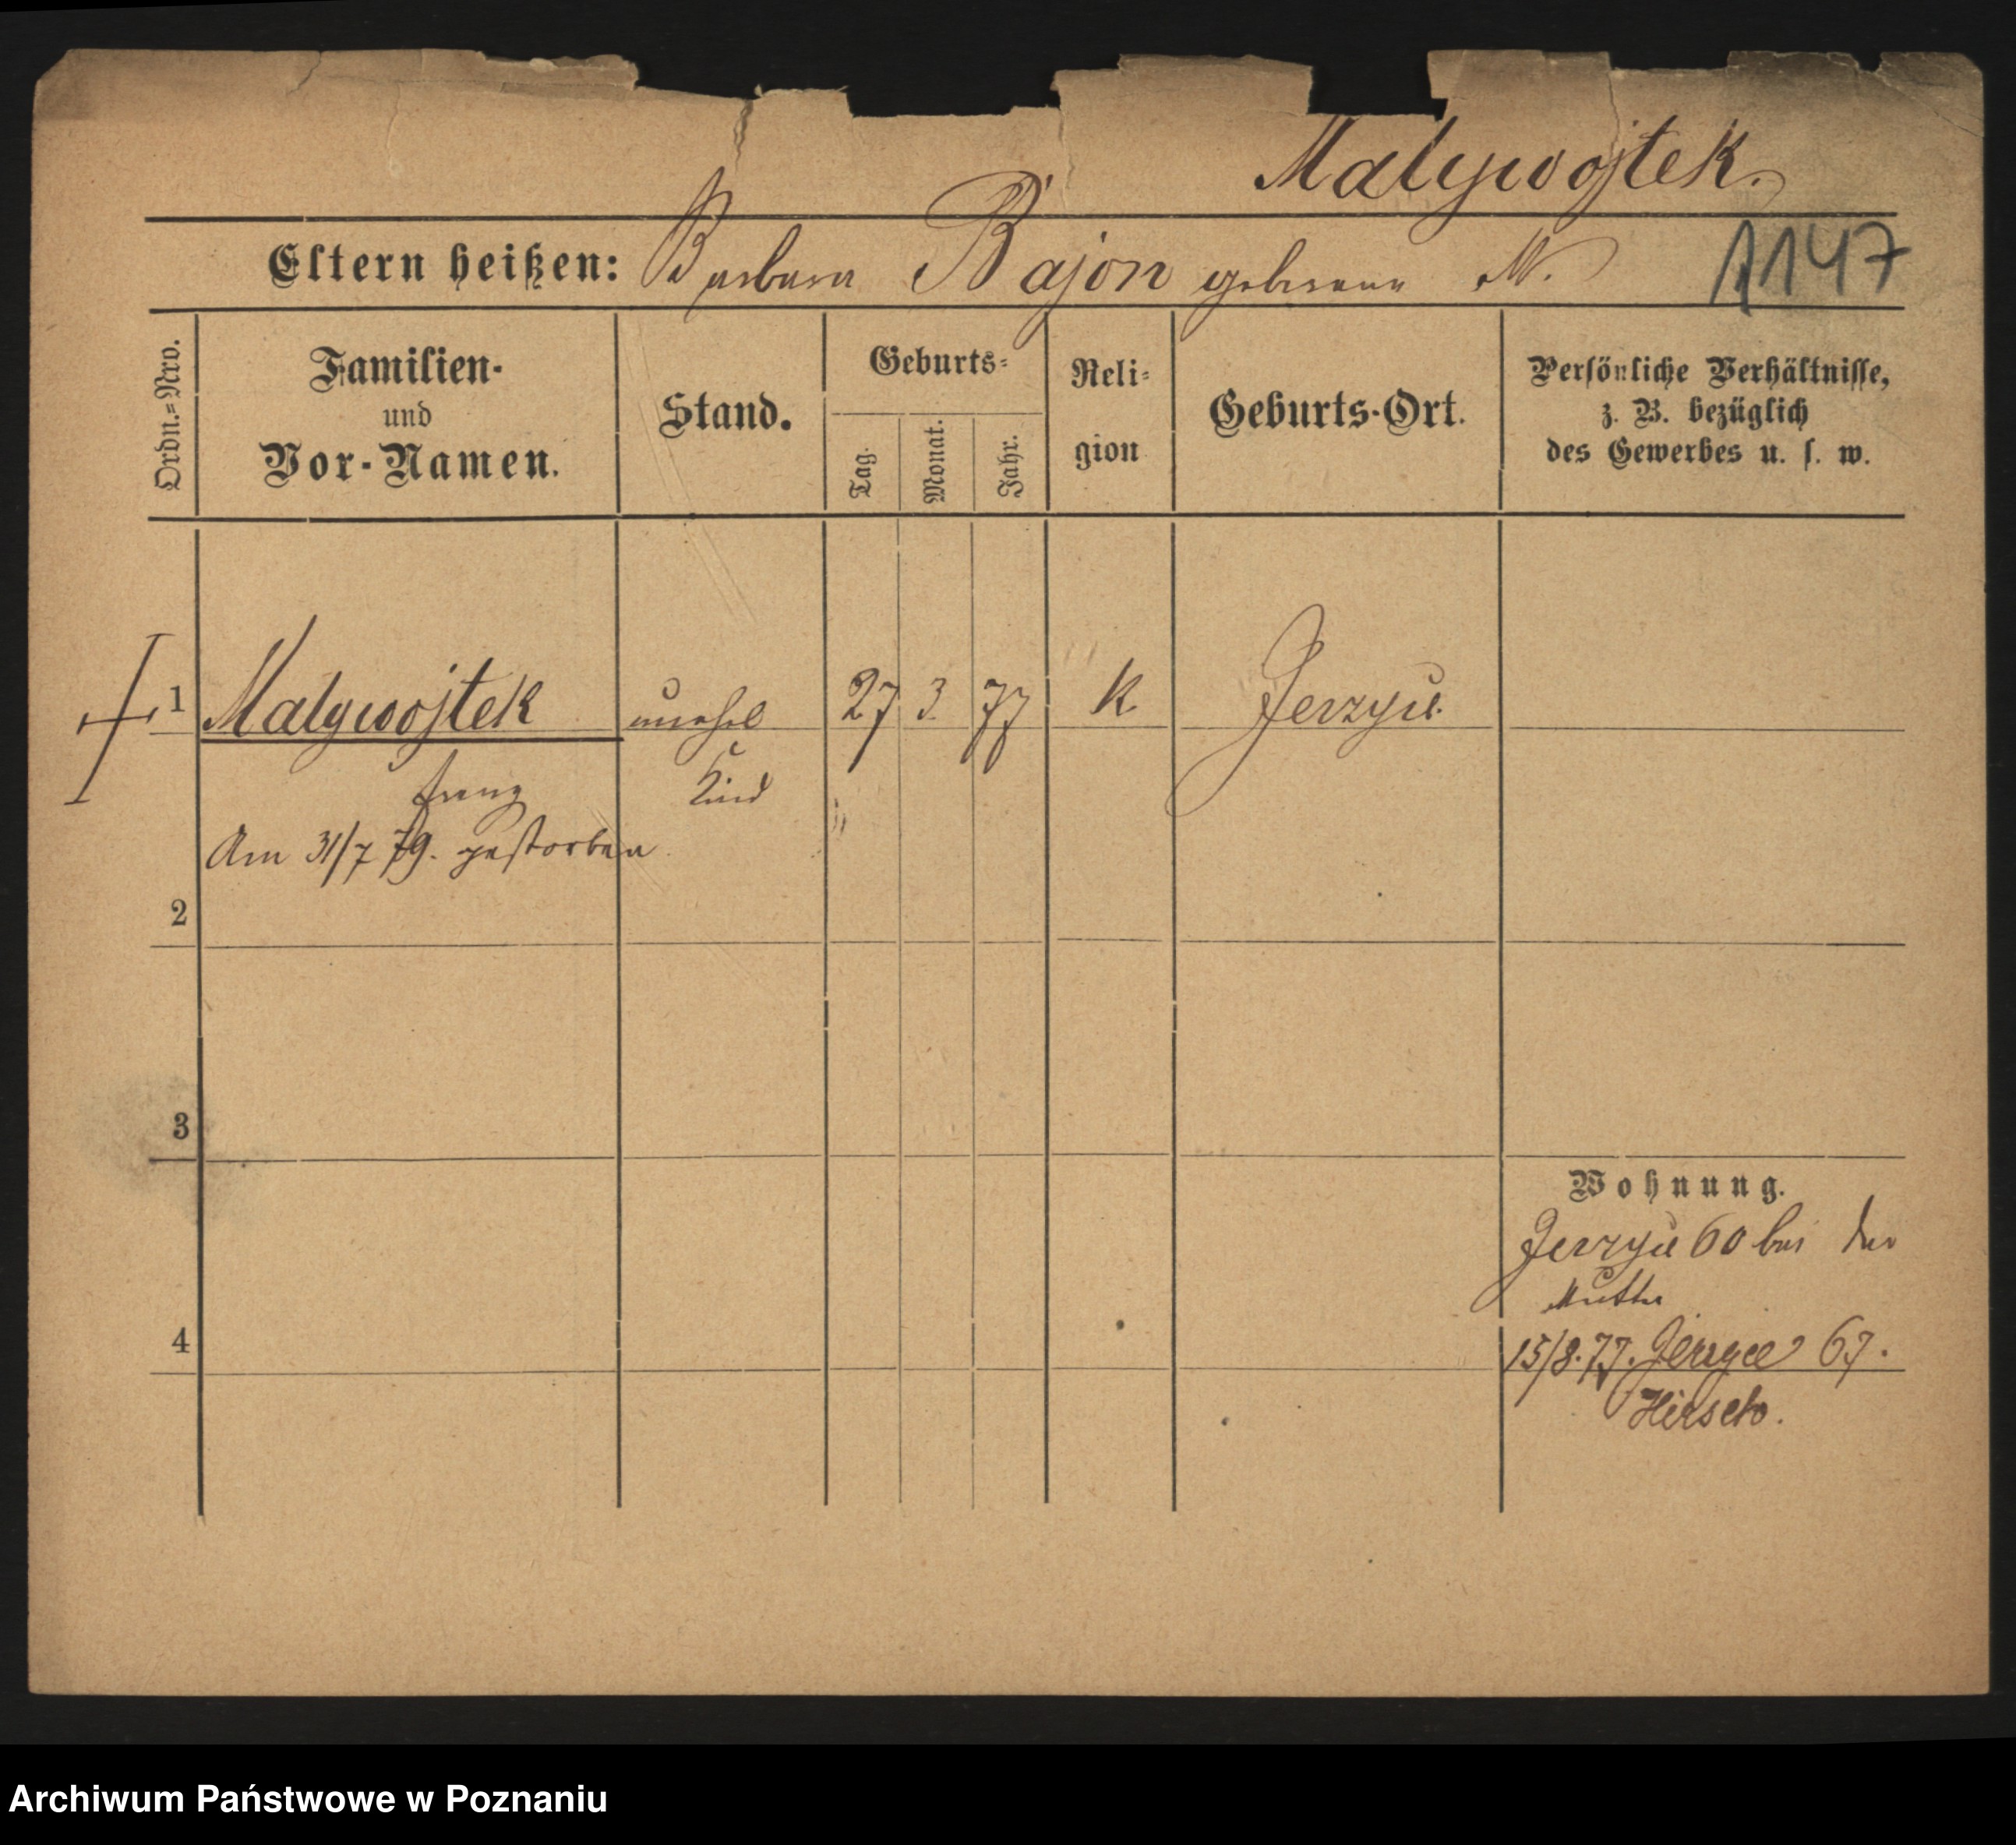 Malywojtek.
Eltern heißen: Barbara Bajon geborene M.
1147
Ordn.=Nro.
Familien-
und
Vor-Namen.
Stand.
Geburts=
Tag.
Monat.
Jahr.
Reli=
gion
Geburts-Ort.
Persönliche Verhältnisse,
z. B. bezüglich
des Gewerbes u. s. w.
1 Malywojtek unehel 27 3 77 k Jerzyce
Franz Kind
Am 31/7 79. gestorben
2
3
Wohnung.
Jerzyce 60 bei der
Mutter
4
15/8.77. Jerzyce 67.
Hirsch.
Archiwum Państwowe w Poznaniu